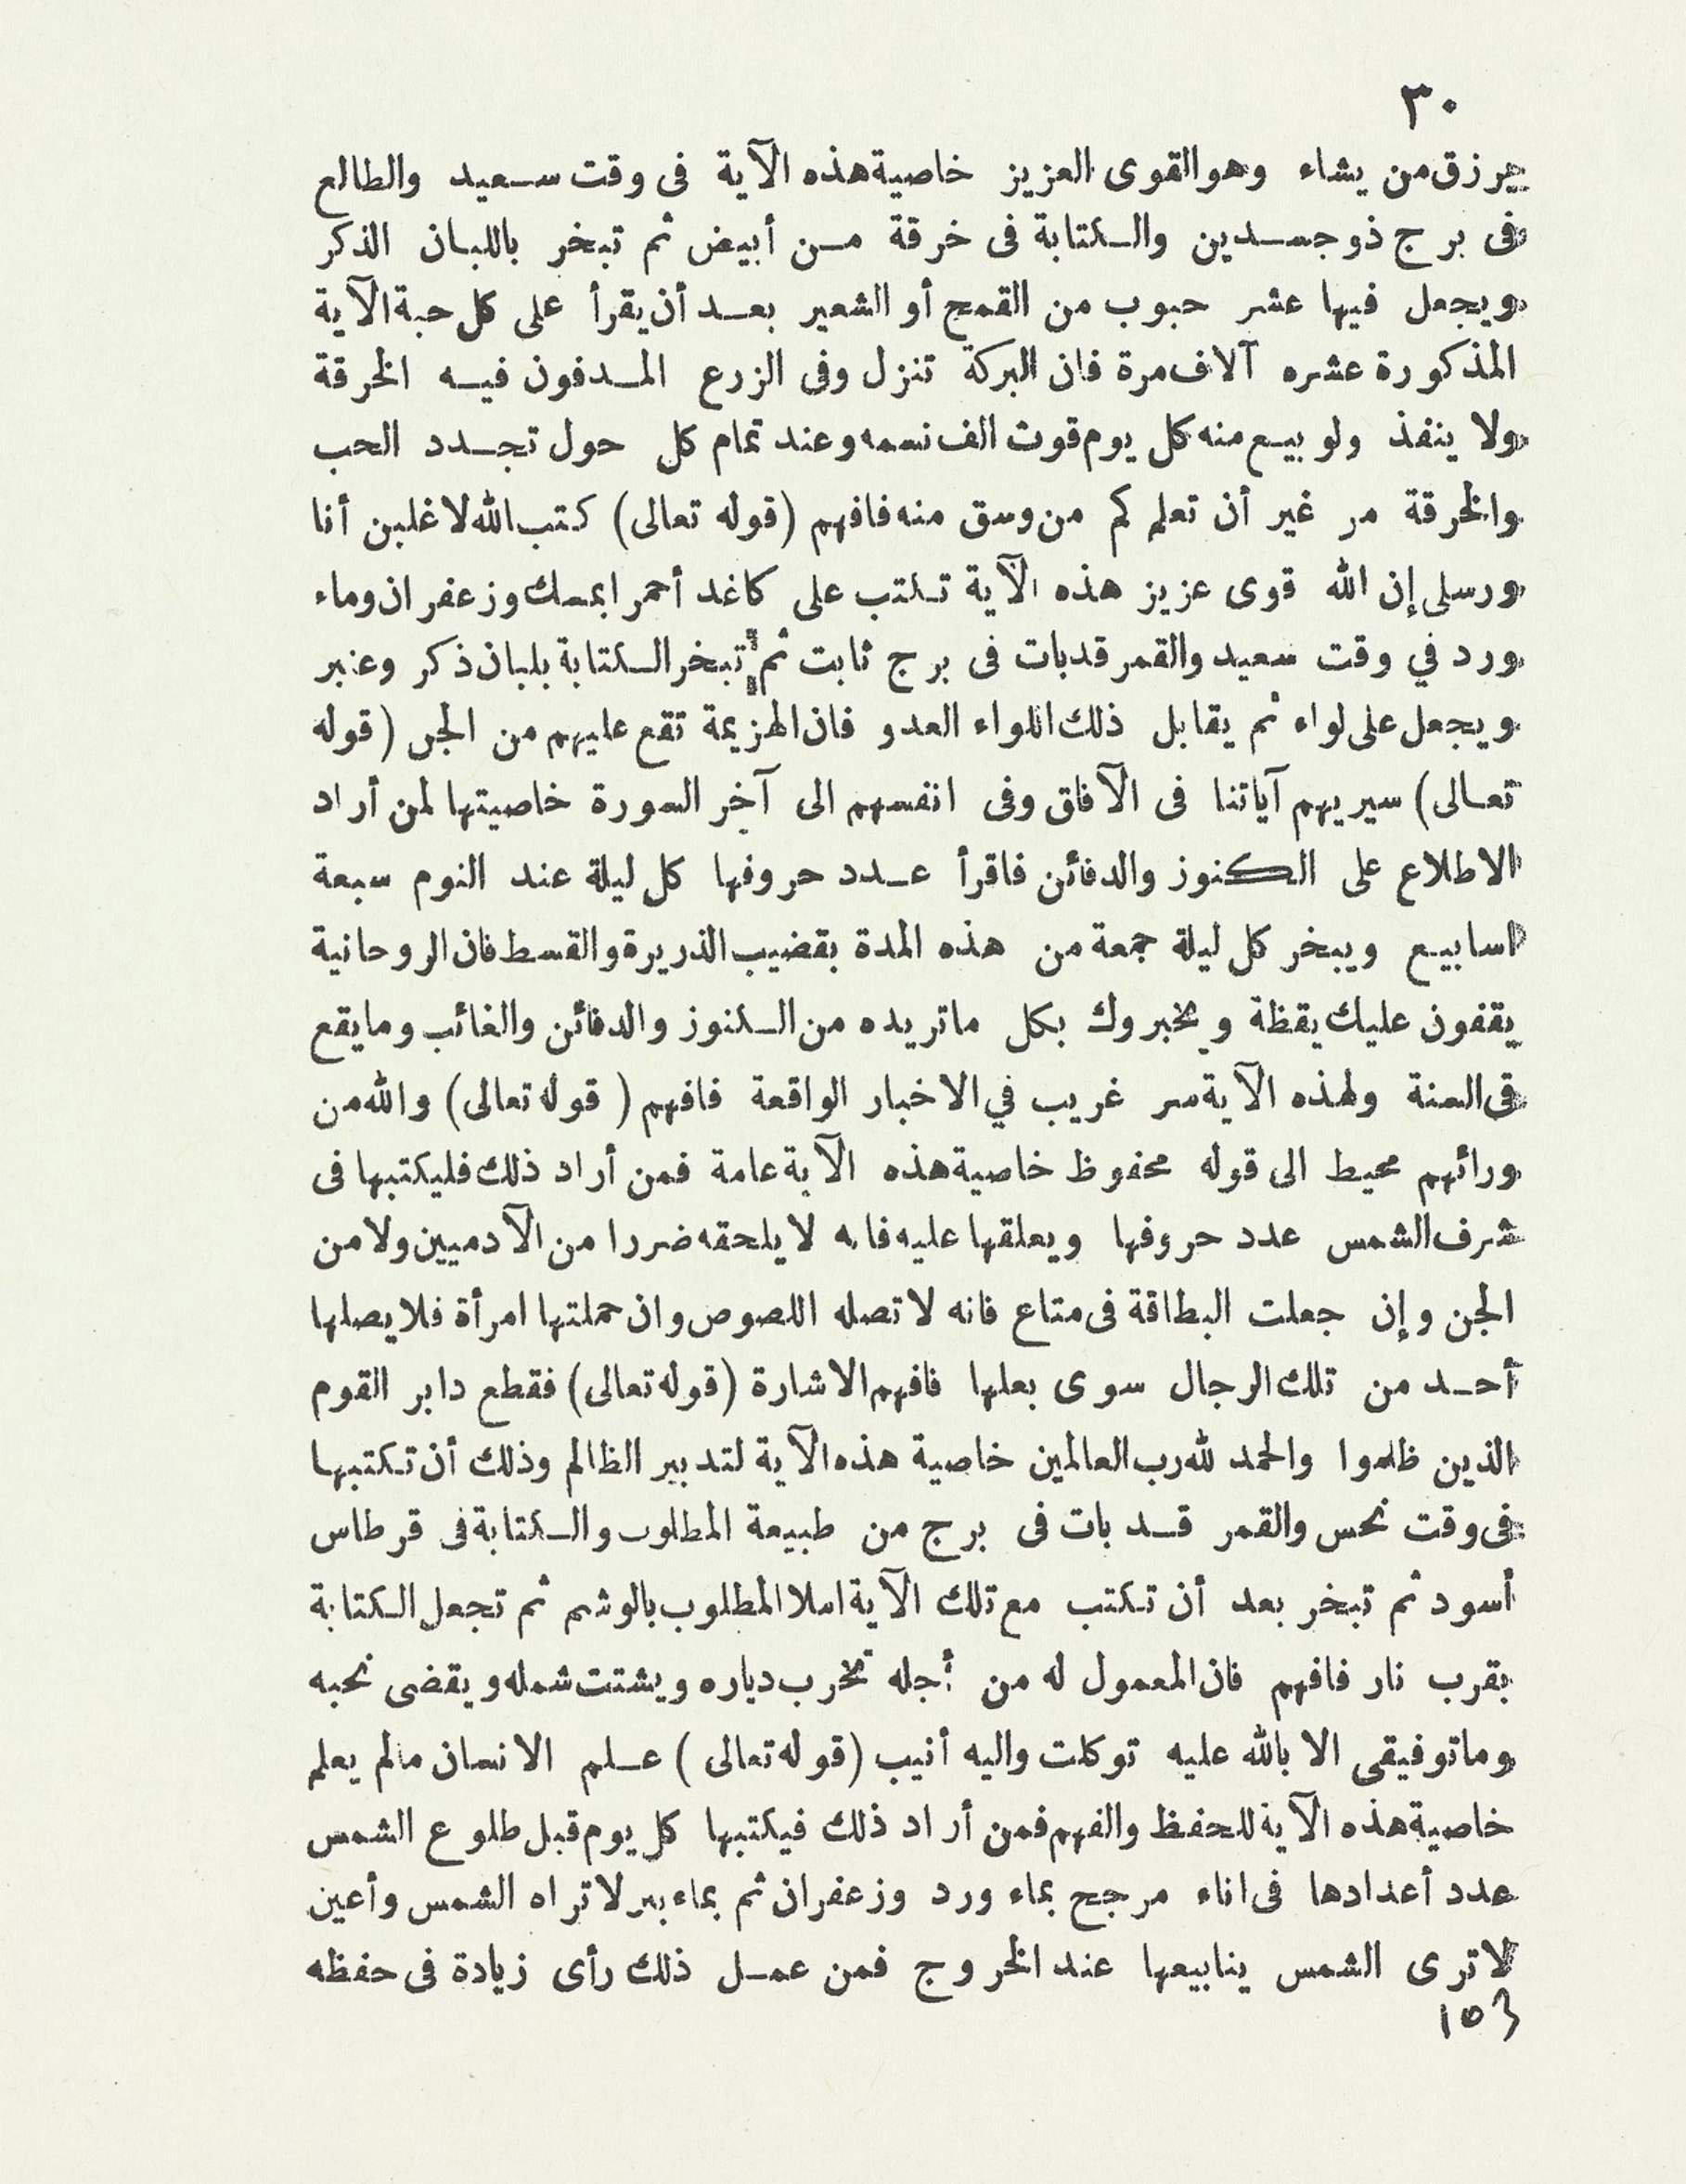 ٣٠
يرزق من يشاء وهو القوى العزيز خاصية هذه الآية فى وقت سعيد والطالع
فى برج ذو جسدين والكتابة فى خرقة من أبيض ثم تبخر باللبان الذكر
ويجعل فيها عشر حبوب من القمح أو الشعير بعد أن يقرأ على كل حبة الآية
المذكورة عشره آلاف مرة فان البركة تنزل وفى الزرع المدفون فيه الخرقة
ولا ينفذ ولو بيع منه كل يوم قوت الف نسمه وعند تمام كل حول تجدد الحب
والخرقة مر غير أن تعلم كم من وسق منه فافهم (قوله تعالى) كتب الله لاغلبن أنا
ورسلى إن الله قوى عزيز هذه الآية تكتب على كاغد أحمر ابمسك وزعفران وماء
ورد في وقت سعيد والقمر قدبات فى برج ثابت ثم تبخر الكتابة بلبان ذكر وعنبر
ويجعل على لواء ثم يقابل ذلك اللواء العدو فان الهزيمة تقع عليهم من الجن (قوله
تعالى) سيريهم آياتنا فى الآفاق وفى انفسهم الى آخر السورة خاصيتها لمن أراد
الاطلاع على الكنوز والدفائن فاقرأ عدد حروفها كل ليلة عند النوم سبعة
اسابيع ويبخر كل ليلة جمعة من هذه المدة بقضيب الذريرة والقسط فان الروحانية
يقفون عليك يقظة ويخبروك بكل ماتريده من الكنوز والدفائن والغائب ومايقع
فى السنة ولهذه الآية سر غريب في الاخبار الواقعة فافهم (قوله تعالى) والله من
ورائهم محيط الى قوله محفوظ خاصية هذه الآية عامة فمن أراد ذلك فليكتبها فى
شرف الشمس عدد حروفها ويعلقها عليه فانه لا يلحقه ضررا من الآدميين ولا من
الجن وإن جعلت البطاقة فى متاع فانه لا تصله اللصوص وان حملتها امرأة فلا يصلها
أحد من تلك الرجال سوى بعلها فافهم الاشارة (قوله تعالى) فقطع دابر القوم
الذين ظلموا والحمد لله رب العالمين خاصية هذه الآية لتدبير الظالم وذلك أن تكتبها
فى وقت نحس والقمر قد بات فى برج من طبيعة المطلوب والكتابة فى قرطاس
أسود ثم تبخر بعد أن تكتب مع تلك الآية املا المطلوب بالوشم ثم تجعل الكتابة
بقرب نار فافهم فان المعمول له من أجله تخرب دياره ويشتت شمله ويقضى نحبه
وماتوفيقى الا بالله عليه توكلت واليه أنيب (قوله تعالى) علم الانسان مالم يعلم
خاصية هذه الآية للحفظ والفهم فمن أراد ذلك فيكتبها كل يوم قبل طلوع الشمس
عدد أعدادها فى اناء مرجح بماء ورد وزعفران ثم بماء بير لا تراه الشمس وأعين
لاترى الشمس ينابيعها عند الخروج فمن عمل ذلك رأى زيادة فى حفظه